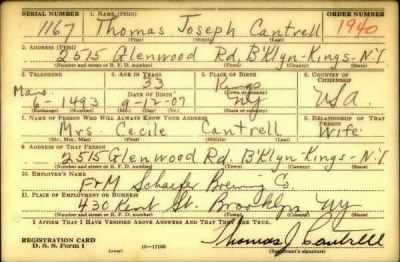 SERIAL NUMBER 1. NAME (Print) ORDER NUMBER
1167 Thomas Joseph Cantrell 1940
(First) (Middle) (Last)
2. ADDRESS (Print)
2515 Glenwood Rd, B'klyn-Kings-N.Y
(Number and street or R. F. D. number) (Town) (County) (State)
3. TELEPHONE 4. AGE IN YEARS 5. PLACE OF BIRTH 6. COUNTRY OF CITIZENSHIP
33 Kings
DATE OF BIRTH
6-1493 9-12-07 NY USA
(Exchange) (Number) (Mo.) (Day) (Yr.) (State or country)
7. NAME OF PERSON WHO WILL ALWAYS KNOW YOUR ADDRESS 8. RELATIONSHIP OF THAT PERSON
Mrs. Cecile Cantrell Wife
(Mr., Mrs., Miss) (First) (Middle) (Last)
9. ADDRESS OF THAT PERSON
2515 Glenwood Rd. B'Klyn-Kings-N.Y
(Number and street or R. F. D. number) (Town) (County) (State)
10. EMPLOYER'S NAME
F&M Schaefer Brewing Co.
11. PLACE OF EMPLOYMENT OR BUSINESS
430 Kent St. Brooklyn NY
(Number and street or R. F. D. number) (Town) (County) (State)
I AFFIRM THAT I HAVE VERIFIED ABOVE ANSWERS AND THAT THEY ARE TRUE.
REGISTRATION CARD
D. S. S. Form 1 (over) Thomas J Cantrell